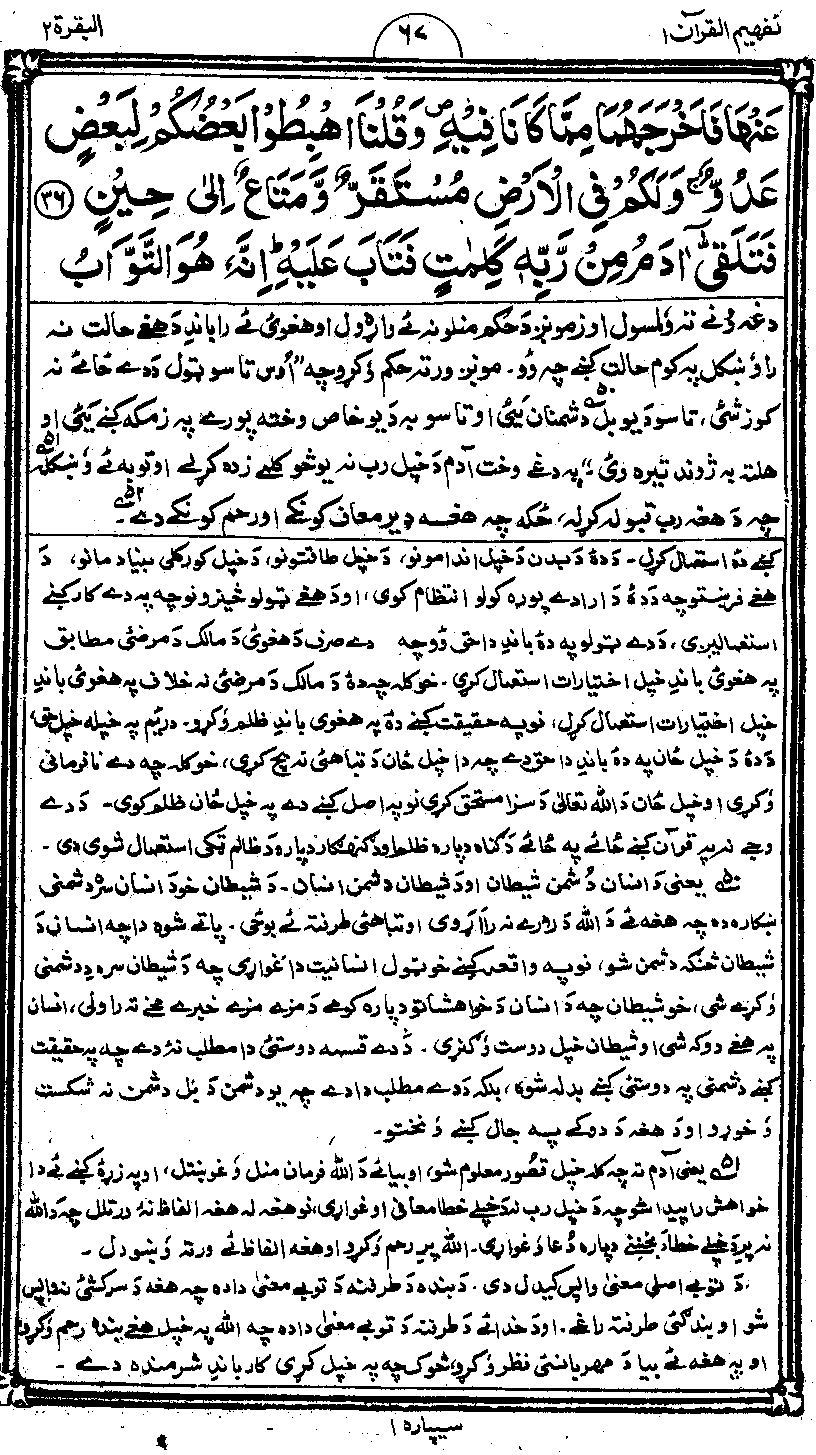 تفهیم القرآن ۱
۶۷
البقرة ۲
عَنْهَا فَاَخْرَجَهُمَا مِمَّا كَانَا فِيْهِ ۪ وَقُلْنَا اهْبِطُوْا بَعْضُكُمْ لِبَعْضٍ
عَدُوٌّ ۚ وَلَكُمْ فِي الْاَرْضِ مُسْتَقَرٌّ وَّمَتَاعٌ اِلٰى حِيْنٍ ﴿۳۶﴾
فَتَلَقّٰۤى اٰدَمُ مِنْ رَّبِّهٖ كَلِمٰتٍ فَتَابَ عَلَيْهِ ؕ اِنَّهٗ هُوَ التَّوَّابُ
دغه ونے ته ولمسول او زمونږ د حکم منلو نه ئے واړول او هغوئ ئے را باندِ د هغے حالت نه
راؤښکل په کوم حالت کښے چه وُو۔ مونږ ورته حکم وکړو چه "اُوس تاسو ټول د دے ځائے نه
کوز شئ، تاسو د یو بل دشمنان یئ او تاسو به د یو خاص وخته پورے په زمکه کښے یئ او
هلته به ژوند تیره وئ"، په دغے وخت آدم د خپل رب نه یو څو کلمے زده کړلے او توبه ئے وښکله
چه د هغه رب قبوله کړله، ځکه چه هغه ډیر معاف کونکے او رحم کونکے دے۔
کښے دهٔ استعمال کړل۔ د دهٔ د بدن د خپل اندامونو، د خپل طاقتونو، د خپل کور کلی بنیاد مانو، د
هغے فرښتو چه د دهٔ د ارادے پوره کولو انتظام کوی، او د هغے ټولو څیزونو چه په دے کار کښے
استعمالیږی، د دے ټولو په دهٔ باندِ دا حق وُو چه دے صرف د هغوئ د مالک د مرضئ مطابق
په هغوئ باندِ خپل اختیارات استعمال کړی۔ خو کله چه دهٔ د مالک د مرضئ نه خلاف په هغوئ باندِ
خپل اختیارات استعمال کړل، نو په حقیقت کښے دهٔ په هغوی باندِ ظلم وکړو۔ دریٔم په خپله خپل حق،
د دهٔ د خپل ځان په دهٔ باندِ دا حق دے چه دا خپل ځان د تباهئ نه بچ کړی، خو کله چه دے نافرمانی
وکړی او خپل ځان د الله تعالیٰ د سزا مستحق کړی نو په اصل کښے دے په خپل ځان ظلم کوی۔ د دے
وجے نه په قرآن کښے ځائے په ځائے د ګناه دپاره ظلم او د ګنهګار دپاره د ظالم ټکی استعمال شوی دی۔
۵۰ یعنی د انسان دُشمن شیطان او د شیطان دشمن انسان۔ د شیطان خو د انسان سره دشمنی
ښکاره ده چه هغه ئے د الله د لارے نه را اړوی او تباهئ طرفته ئے بوځی۔ پاتے شوه دا چه انسان د
شیطان څنګه دشمن شو، نو په واقعه کښے خو ټول انسانیت دا غواړی چه د شیطان سره دِ دشمنی
وکړے شی، خو شیطان چه د انسان د خواهشاتو دپاره کومے د مزے مزے خبرے مخے ته راولی، انسان
په هغے دوکه شی او شیطان خپل دوست وګنړی۔ د دے قسمه دوستئ دا مطلب نهٔ دے چه په حقیقت
کښے دشمنی په دوستئ کښے بدله شوه، بلکه د دے مطلب دا دے چه یو دشمن د بل دشمن نه شکست
وخوړو او د هغه د دوکے په جال کښے ونختو۔
۵۱ یعنی آدم ته چه کله خپل قصور معلوم شو، او بیائے د الله فرمان منل وغوښتل، او په زړهٔ کښے ئے دا
خواهش را پیدا شو چه د خپل رب نه د خپلے خطا معافی اوغواړی، نو هغه له هغه الفاظ نهٔ ورتلل چه د الله
نه پرِ د خپلے خطا د بخښنے دپاره دُعا وغواړی۔ الله پرِ رحم وکړو او هغه الفاظ ئے ورته وښودل۔
د توبے اصلی معنیٰ واپس کیدل دی۔ د بنده د طرفنه د توبے معنیٰ دا ده چه هغه د سرکشئ نه واپس
شو او بندګئ طرفته راغے۔ او د خدائے د طرفنه د توبے معنیٰ دا ده چه الله په خپل هغے بنده رحم وکړو
او په هغه ئے بیا د مهربانئی نظر وکړو، څوک چه په خپل کړی کار باندِ شرمنده دے۔
سیپاره ۱